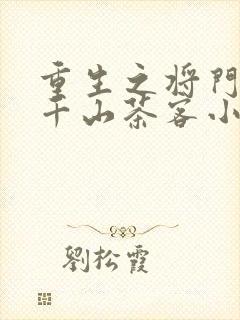 重生之将門
千山茶客小
劉松霞